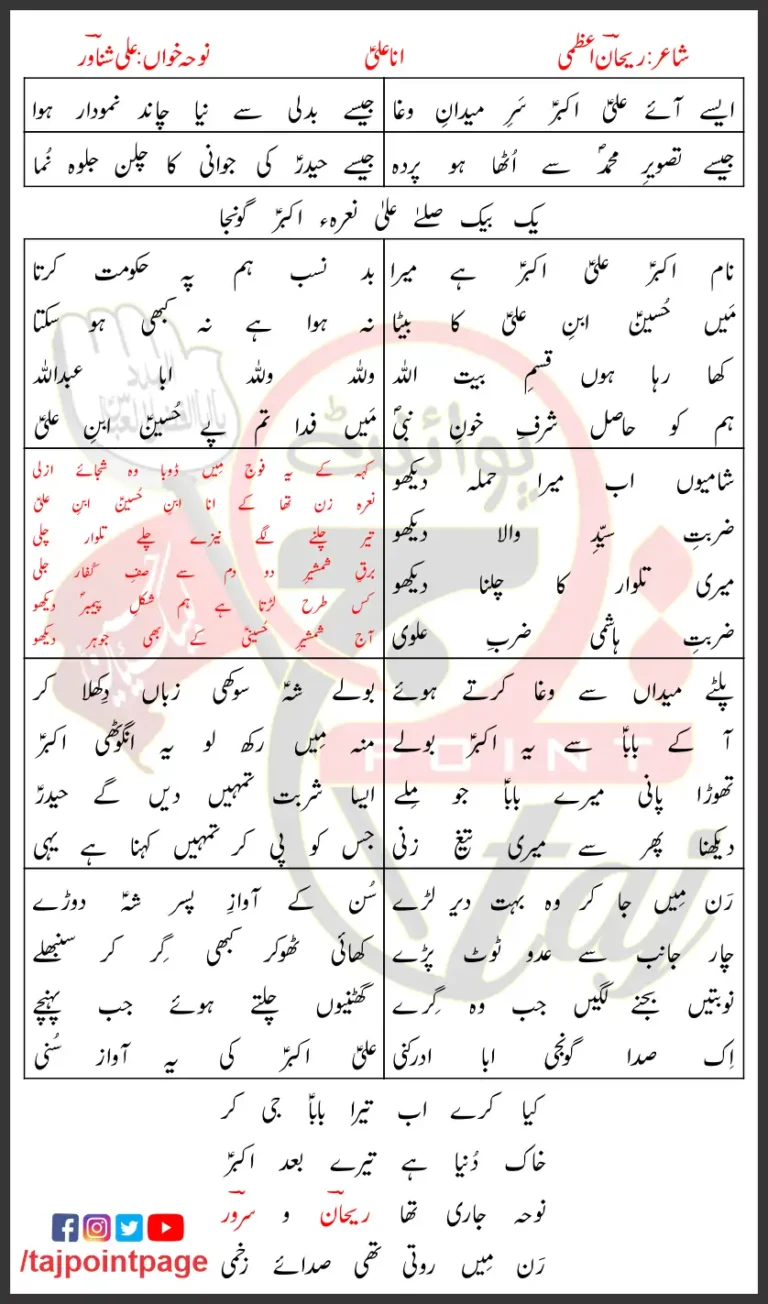 شاعر: ریحان اعظمی انا علیؑ نوحہ خواں: علی شناور
ایسے آئے علیؑ اکبرؑ سَرِ میدانِ وغا
جیسے بدلی سے نیا چاند نمودار ہوا
جیسے تصویرِ محمدؐ سے اُٹھا ہو پردہ
جیسے حیدرؑ کی جوانی کا چلن جلوہ نُما
یک بیک صلےٰ علیٰ نعرہء اکبرؑ گونجا
نام اکبرؑ علیؑ اکبرؑ ہے میرا
مَیں حُسینؑ ابنِ علیؑ کا بیٹا
کھا رہا ہوں قسمِ بیت اللہ
ہم کو حاصل شرفِ خونِ نبیؐ
بد نسب ہم پہ حکومت کرتا
نہ ہوا ہے نہ کبھی ہو سکتا
وللہ وللہ ابا عبداللہ
مَیں فدا تم پے حُسینؑ ابنِ علیؑ
شامیوں اب میرا حملہ دیکھو
ضربتِ سیّدِ والا دیکھو
میری تلوار کا چلنا دیکھو
ضربتِ ہاشمی ضربِ علوی
کہہ کے یہ فوج مِیں ڈوبا وہ شجائے ازلی
نعرہ زن تھا کے انا ابنِ حُسینؑ ابنِ علیؑ
تیر چلنے لگے نیزے چلے تلوار چلی
برقِ شمشیرِ دو دم سے صفِ کُفار جلی
کس طرح لڑتا ہے ہم شکلِ پیمبرؐ دیکھو
آج شمشیرِ حُسینیؑ کے بھی جوہر دیکھو
پلٹے میداں سے وغا کرتے ہوئے
آ کے باباؑ سے یہ اکبرؑ بولے
تھوڑا پانی میرے باباؑ جو مِلے
دیکھنا پھر سے میری تیغ زنی
بولے شہؑ سوکھی زباں دِکھلا کر
منہ مِیں رکھ لو یہ انگوٹھی اکبرؑ
ایسا شربت تمہیں دیں گے حیدرؑ
جس کو پی کر تمہیں کہنا ہے یہی
رَن مِیں جا کر وہ بہت دیر لڑے
چار جانب سے عدو ٹوٹ پڑے
نوبتیں بجنے لگیں جب وہ گِرے
اِک صدا گونجی ابا ادرکنی
سُن کے آوازِ پسر شہؑ دوڑے
کھائی ٹھوکر کبھی گِر کر سنبھلے
گھٹنیوں چلتے ہوئے جب پہنچے
علیؑ اکبرؑ کی یہ آواز سُنی
کیا کرے اب تیرا باباؑ جی کر
خاک دُنیا ہے تیرے بعد اکبرؑ
نوحہ جاری تھا ریحان و سرور
رَن مِیں روتی تھی صدائے زخمی
/tajpointpage
پوائنٹ
POINT
taj